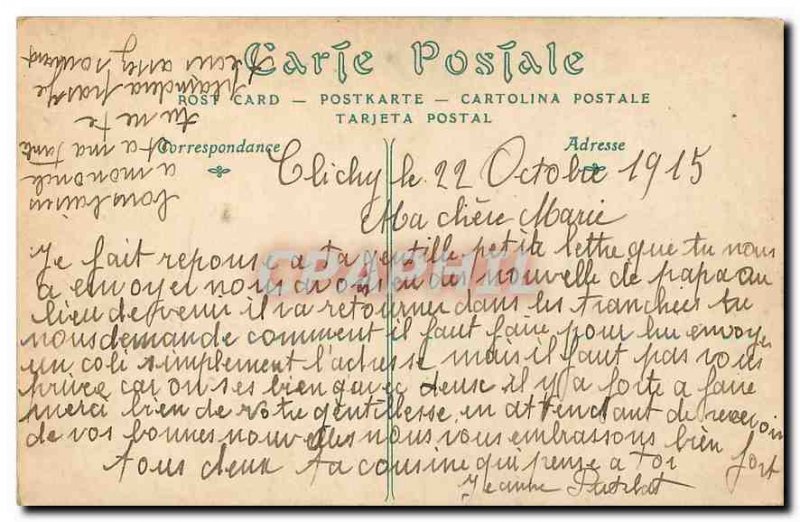 Carte Postale
POST CARD — POSTKARTE — CARTOLINA POSTALE
TARJETA POSTAL
Correspondance
Adresse
Clichy le 22 Octobre 1915
Ma chère Marie
Je fait reponse a ta gentille petite lettre que tu nous
a envoyer nous avons eu des nouvelle de papa au
lieu de venir il va retourner dans les tranchées tu
nous demande comment il faut faire pour lui envoyer
un coli simplement l'adresse mais il faut pas vous
privée car on ses bien qu'avec deux il y a forte a faire
merci bien de votre gentillesse en attendant de recevoir
de vos bonnes nouvelles nous vous embrassons bien fort
tous deux ta cousine qui pense a toi
Jeanne
bons baisers
a mon oncle
et a ma tante
tu ne te
plaindra pas je
CPAPHIL